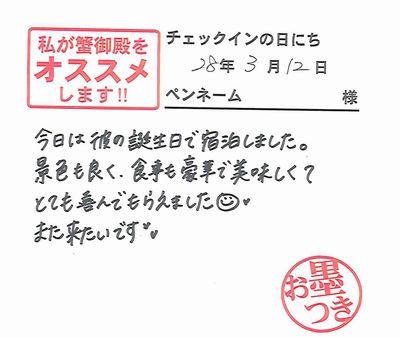 私が蟹御殿を
オススメ
します!!
チェックインの日にち
28年 3月 12日
ペンネーム 様
今日は彼の誕生日で宿泊しました。
景色も良く、食事も豪華で美味しくて
とても喜んでもらえました☺♥
また来たいです♥♥
お墨つき